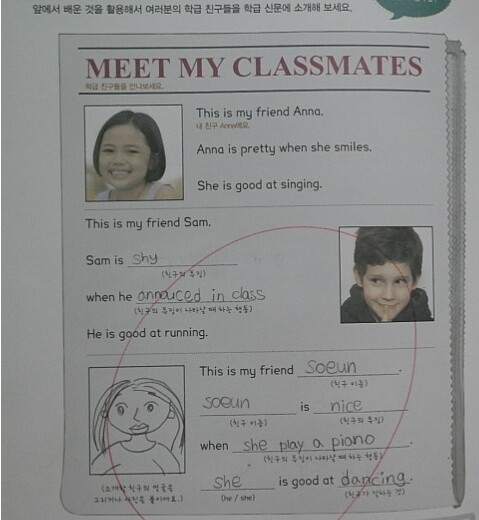 앞에서 배운 것을 활용해서 여러분의 학급 친구들을 학급 신문에 소개해 보세요.
MEET MY CLASSMATES
학급 친구들을 만나보세요.
This is my friend Anna.
내 친구 Anna예요.
Anna is pretty when she smiles.
She is good at singing.
This is my friend Sam.
Sam is shy
(친구의 특징)
when he annouced in class
(친구의 특징이 나타날 때 하는 행동)
He is good at running.
This is my friend soeun.
(친구 이름)
soeun is nice
(친구 이름) (친구의 특징)
when she play a piano.
(친구의 특징이 나타날 때 하는 행동)
she is good at dancing.
(he / she) (친구가 잘하는 것)
(소개할 친구의 얼굴을
그리거나 사진을 붙이세요.)